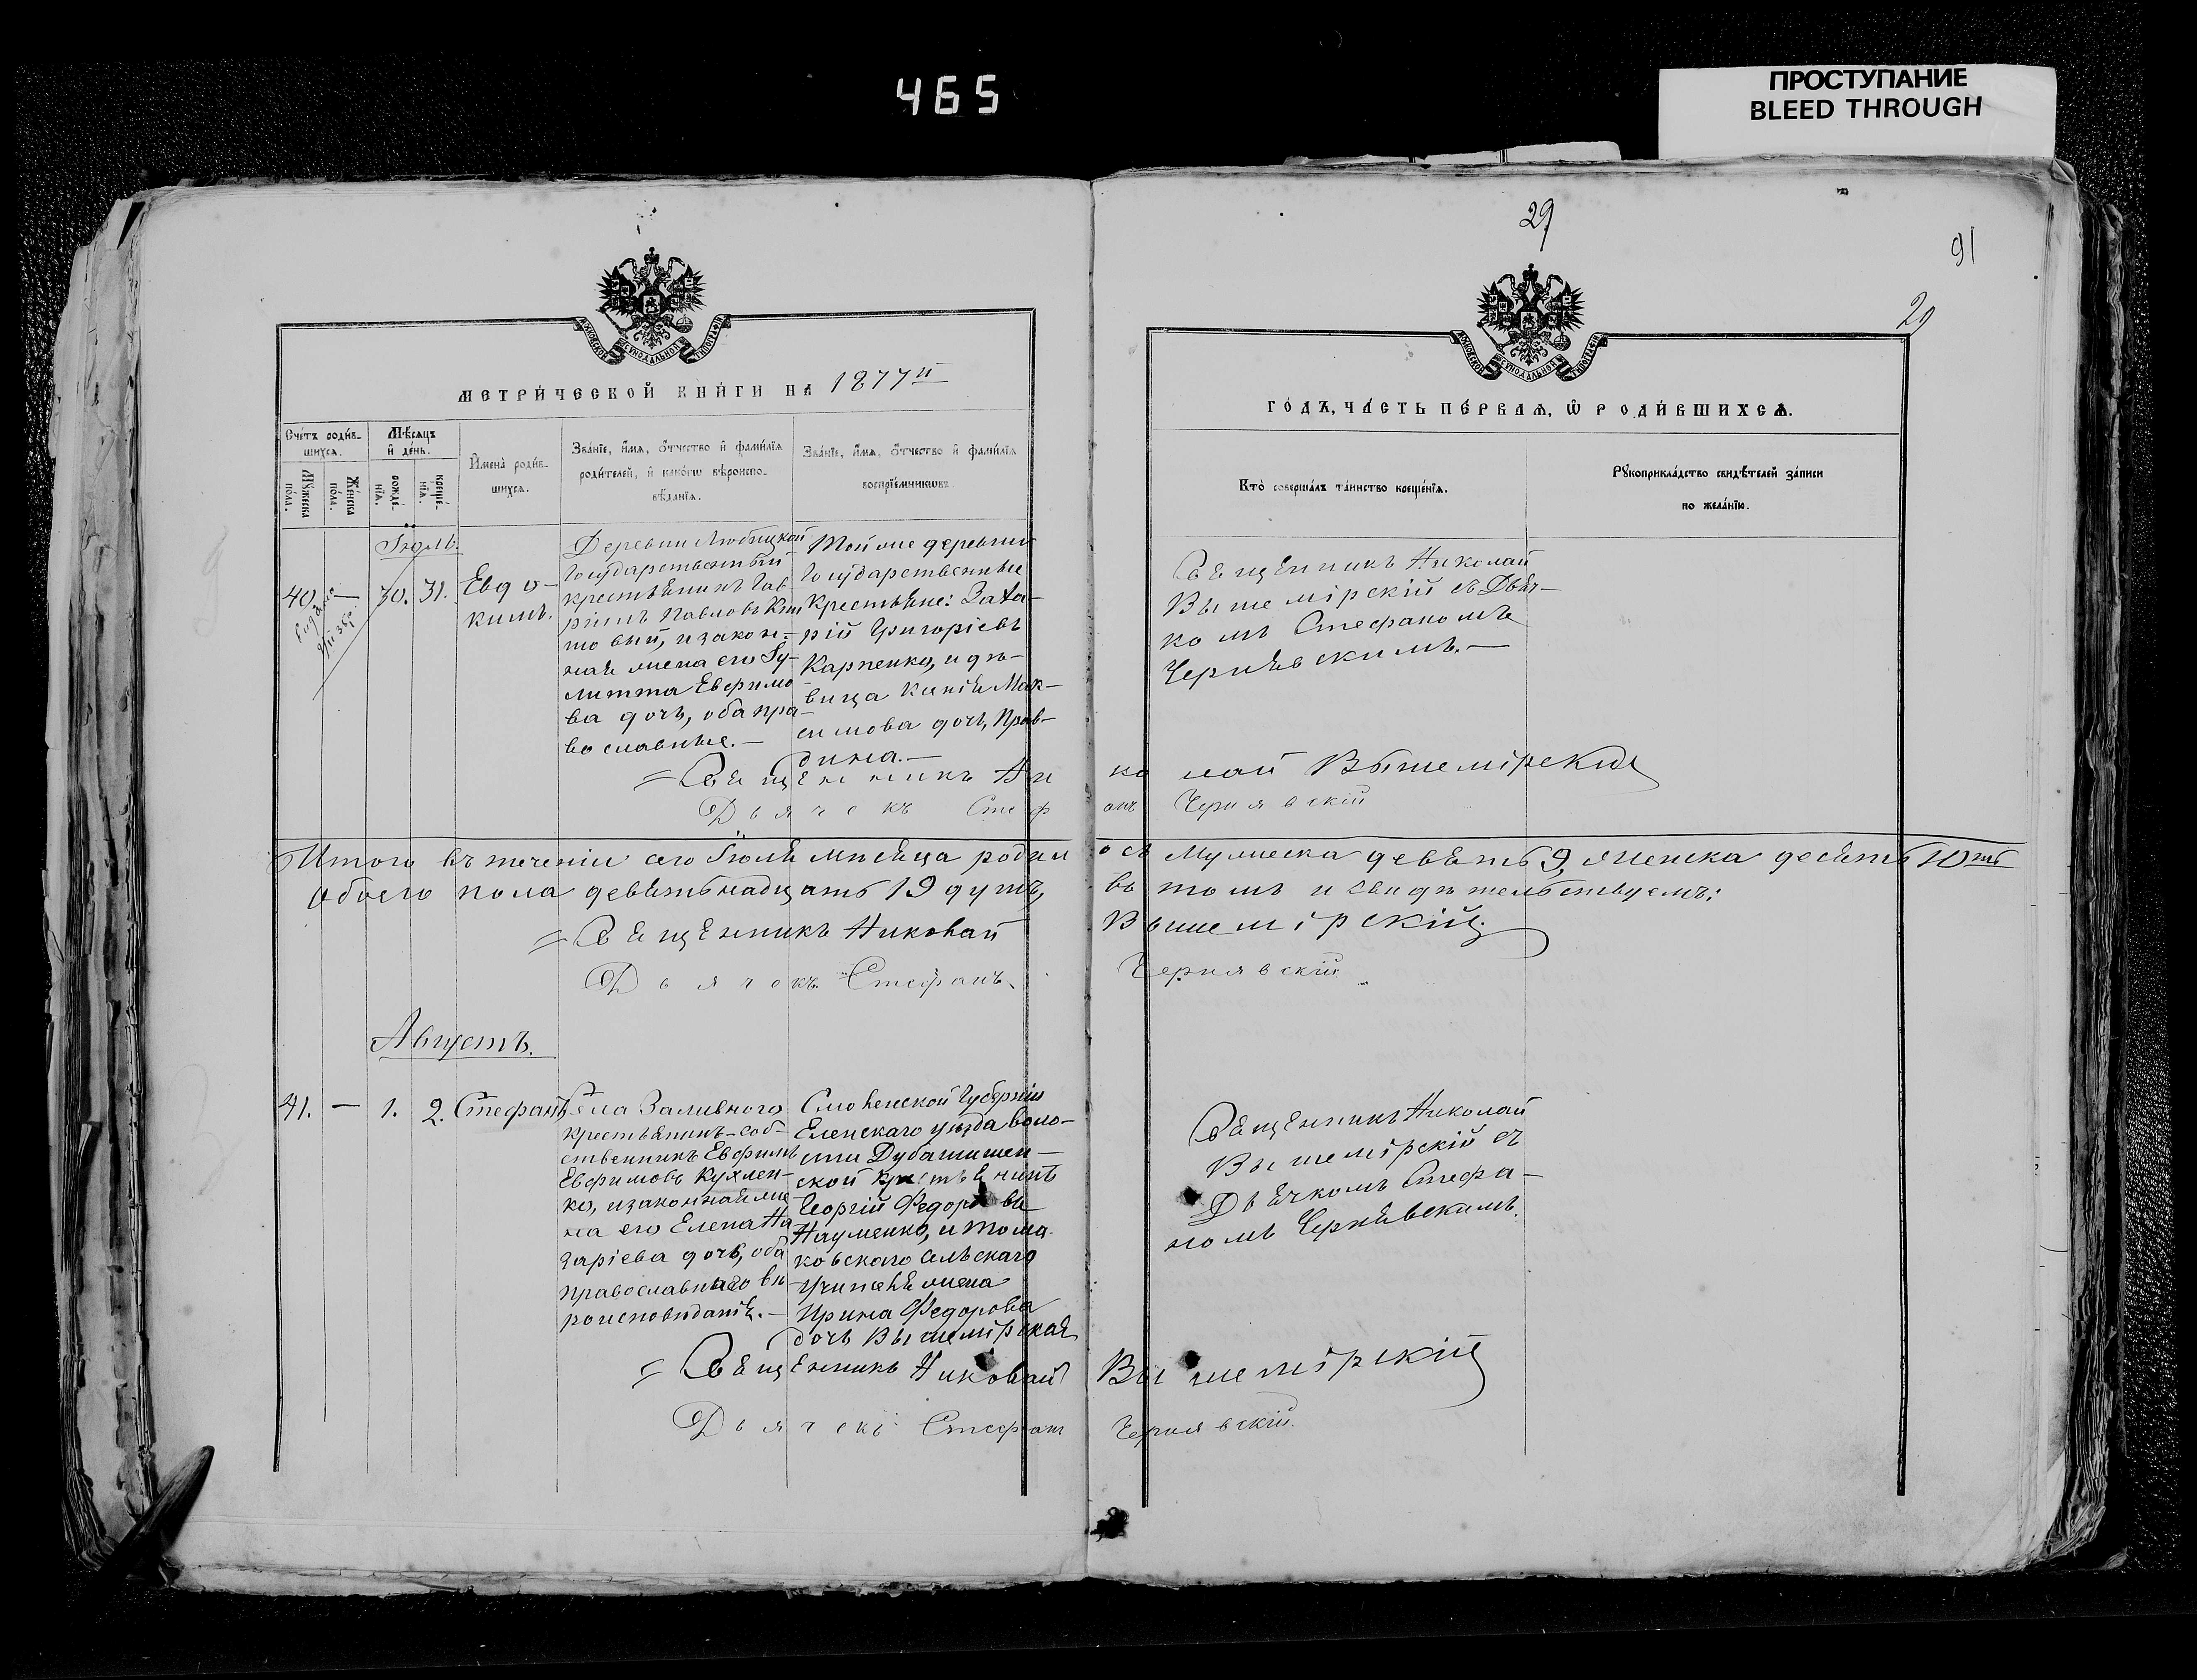 465
ПРОСТУПАНИЕ
BLEED THROUGH
29
91
29
МОСКОВСКОЙ СѴНОДАЛЬНОЙ ТИПОГРАФІИ
МОСКОВСКОЙ СѴНОДАЛЬНОЙ ТИПОГРАФІИ
МЕТРИ́ЧЕСКОЙ КНИ́ГИ НА 1877й
ГО́ДЪ, ЧА́СТЬ ПЕ́РВАѦ, Ѡ РОДИ́ВШИХСѦ.
Сче́тъ роди́в-
шихсѧ.
Мꙋжеска
по́ла.
Же́нска
по́ла.
Мѣ́сѧцъ
и де́нь.
рожде́-
нїѧ.
креще́-
нїѧ.
Имена̀ роди́в-
шихсѧ.
Зва́нїе, и́мѧ, о́тчество и фами́лїѧ
роди́телей, и како́гѡ вѣроиспо-
вѣ́данїѧ.
Зва́нїе, и́мѧ, о́тчество и фами́лїѧ
воспрїе́мникѡвъ.
Кто̀ соверша́лъ та́инство креще́нїѧ.
Рꙋкоприкла́дство свидѣ́телей за́писи
по жела́нїю.
Іюль.
40. — 30. 31. Евдо-
кимъ.
Деревни Любицкой
Государственный
крестьянинъ Гав
риилъ Павловъ
товый, и закон-
ная жена его Іу-
литта Евфимо
ва дочь, оба пра-
вославные.—
Той же деревни
Государственные
Крестьяне: Заха-
рій Григоріевъ
Карпенко, и дѣ-
вица Ксенія Мак-
симова дочь, Прав-
дина.—
Священникъ Николай
Вышемірскій съ Дьяч-
комъ Стефаномъ
Чернявскимъ.—
Священникъ Николай Вышемірскій
Дьячекъ Стефанъ Чернявскій
Итого въ теченіи сего Іюля мѣсяца родилось Мужеска девять 9, женска десять 10ть
Обоего пола девятьнадцать 19 душъ, въ томъ и свидѣтельствуемъ:
Священникъ Николай Вышемірскій.
Дьячекъ Стефанъ Чернявскій
Августъ.
41. — 1. 2. Стефанъ
Села Заливного
крестьянинъ-соб-
ственникъ Евфимъ
Евфимовъ Кухлен-
ко, и законная же
на его Елена На
заріева дочь, оба
православнаго вѣ-
роисповѣданія.—
Смоленской Губерніи
Еленскаго уѣзда воло-
сти Дубашишен-
ской крестьянинъ
Георгій Федоровъ
Науменко, и Тома-
ковскаго сельскаго
Учителя жена
Ирина Федорова
дочь Вышемірская
Священникъ Николай
Вышемірскій съ
Дьячкомъ Стефа-
номъ Чернявскимъ.
Священникъ Николай Вышемірскій
Дьячекъ Стефанъ Чернявскій.